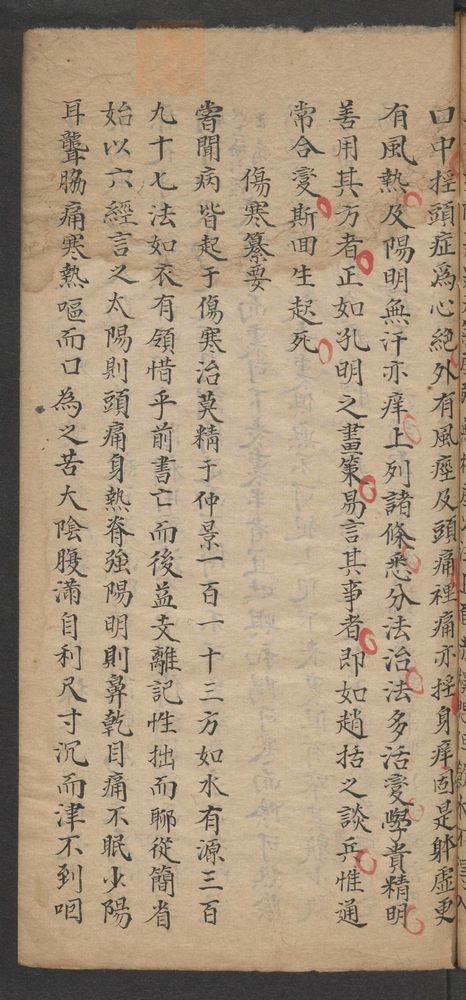 口中搖頭症爲心絶外有風痙及頭痛裡痛亦搖身痒固是躰虛更
有風熱及陽明無汗亦痒上列諸條悉分法治法多活変學貴精明
善用其方者正如孔明之畫策易言其事者即如趙括之談兵惟通
常合変斯囬生起死
傷寒纂要
嘗聞病皆起于傷寒治莫精于仲景一百一十三方如水有源三百
九十七法如衣有領惜乎前書亡而後益支離記性拙而聊從簡省
始以六經言之太陽則頭痛身熱脊強陽明則鼻乾目痛不眠少陽
耳聾脇痛寒熱嘔而口為之苦大陰腹滿自利尺寸沉而津不到咽